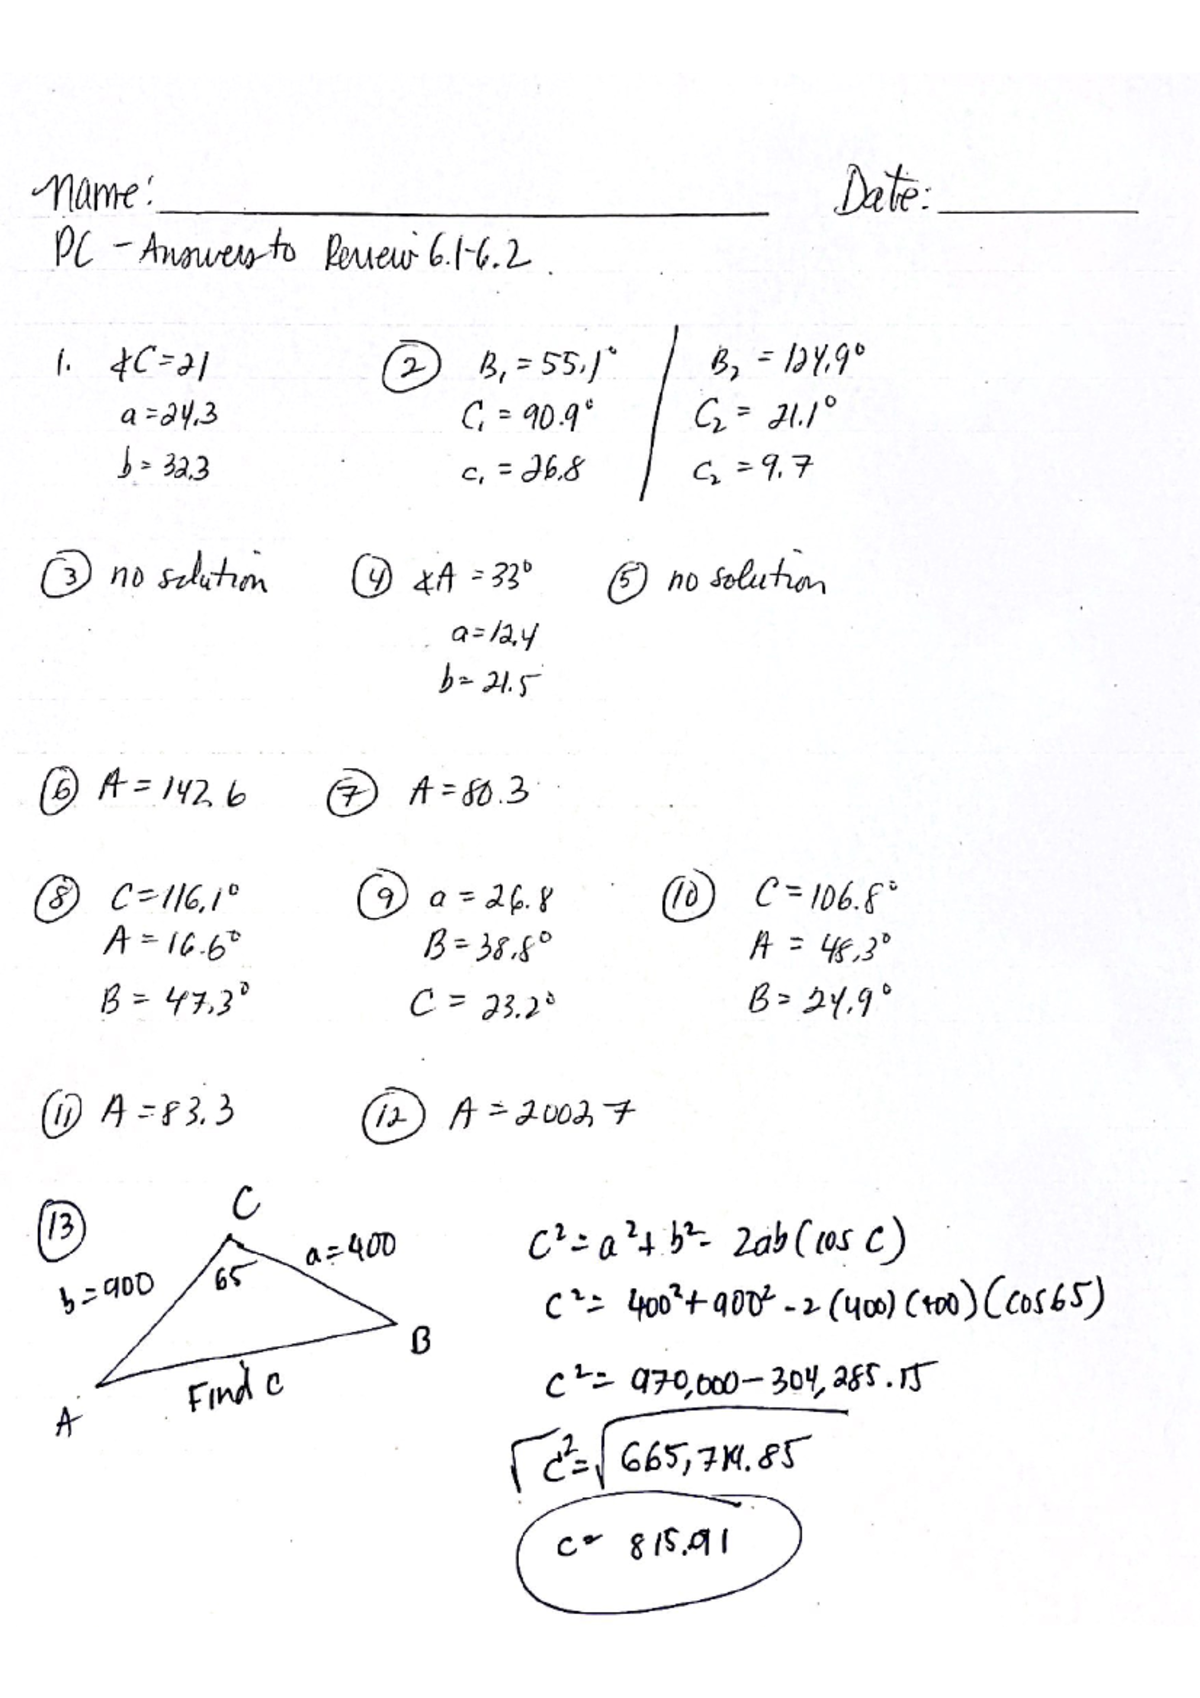 Name: Date:
PC - Answers to Review 6.1-6.2.
1. ∡C = 21
a = 24.3
b = 32.3
2 B₁ = 55.1°
C₁ = 90.9°
c₁ = 26.8
B₂ = 124.9°
C₂ = 21.1°
c₂ = 9.7
3 no solution
4 ∡A = 33°
a = 12.4
b = 21.5
5 no solution
6 A = 142.6
7 A = 80.3
8 C = 116.1°
A = 16.6°
B = 47.3°
9 a = 26.8
B = 38.8°
C = 23.2°
10 C = 106.8°
A = 48.3°
B = 24.9°
11 A = 83.3
12 A = 2002.7
13
C
b = 900
a = 400
65
B
A
Find c
c² = a² + b² - 2ab (cos C)
c² = 400² + 900² - 2 (400) (900) (cos 65)
c² = 970,000 - 304,285.15
√c² = √665,714.85
c = 815.91